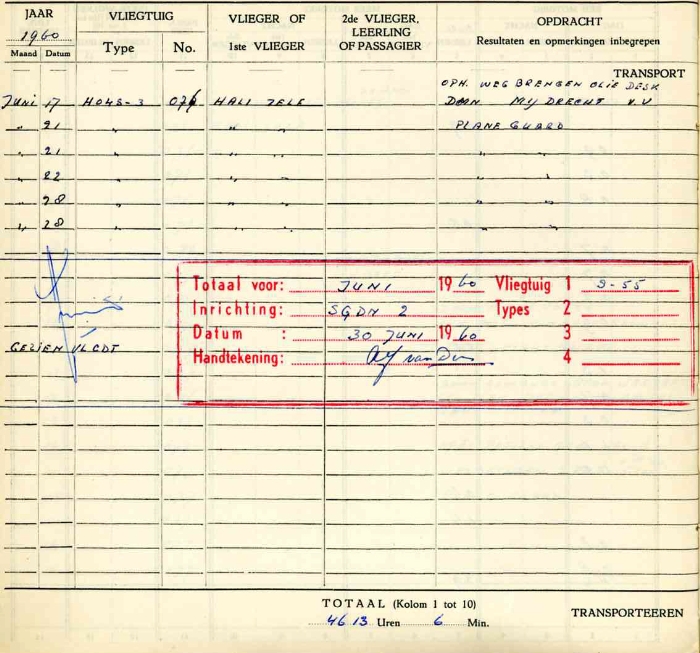 JAAR VLIEGTUIG VLIEGER OF 2de VLIEGER, OPDRACHT
1960 LEERLING
Maand Datum Type No. 1ste VLIEGER OF PASSAGIER Resultaten en opmerkingen inbegrepen
TRANSPORT
OPH. WEGBRENGEN OLIE DESK
JUNI 17 HO4S-3 076 HALI ZELF DOON MIJDRECHT V.V
" 21 " " " PLANE GUARD
" 21 " " " " "
" 22 " " " " "
" 28 " " " " "
" 28 " " " " "
Totaal voor: JUNI 1960 Vliegtuig 1 9-55
Inrichting: SGDN 2 Types 2
Datum : 30 JUNI 1960 3
GEZIEN VLCDT Handtekening: 4
TOTAAL (Kolom 1 tot 10) TRANSPORTEEREN
4613 Uren 6 Min.